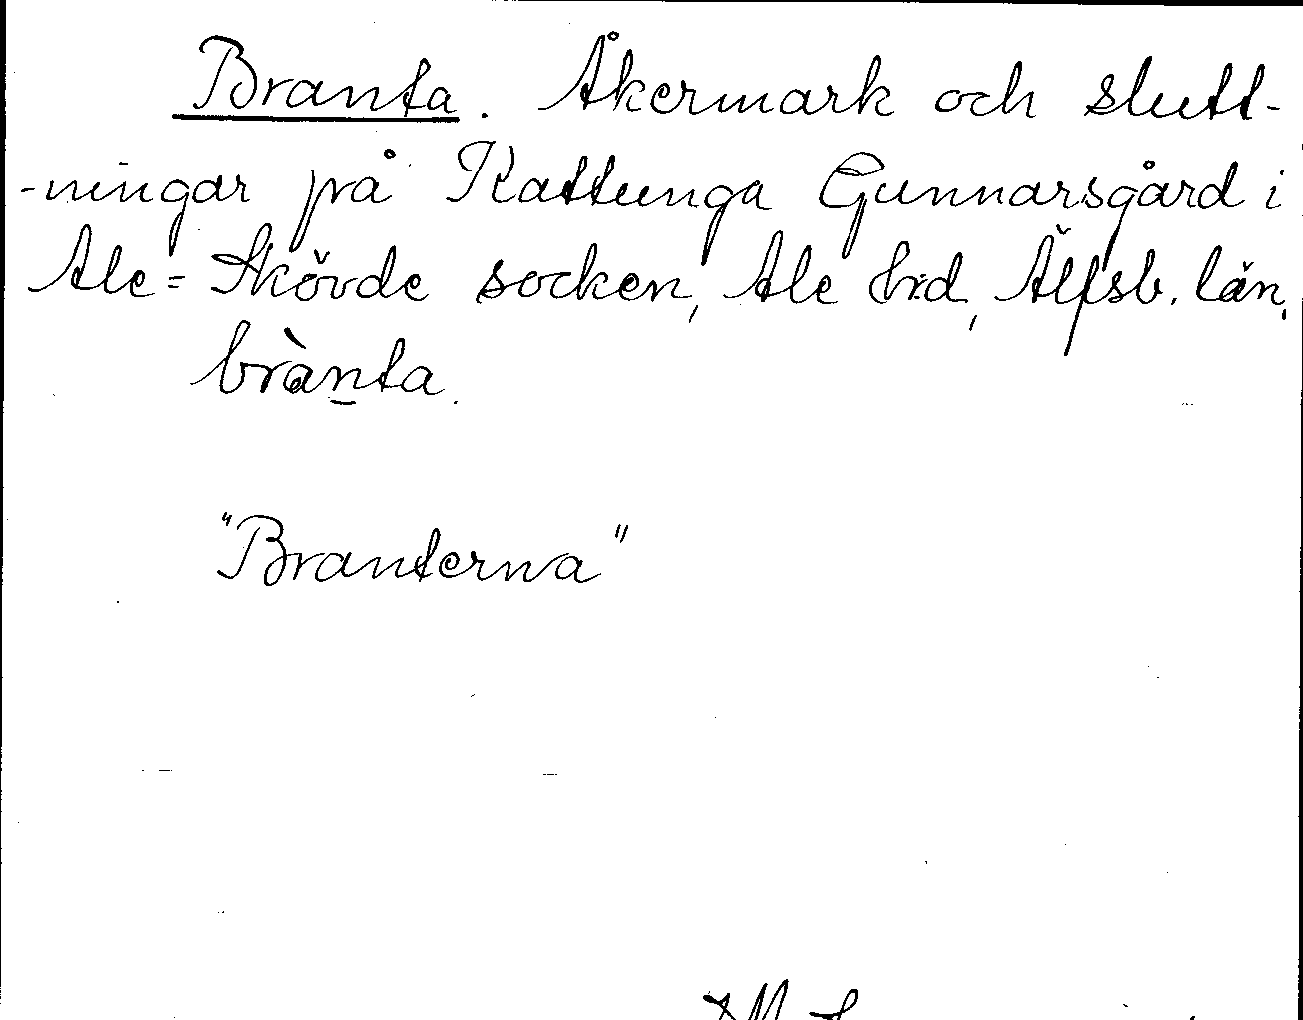 Branta. Åkermark och slutt-
-ningar på Kattunga Gunnarsgård i
Ale=Skövde socken, Ale hrd, Älfsb. län.
brànta.
"Branterna"